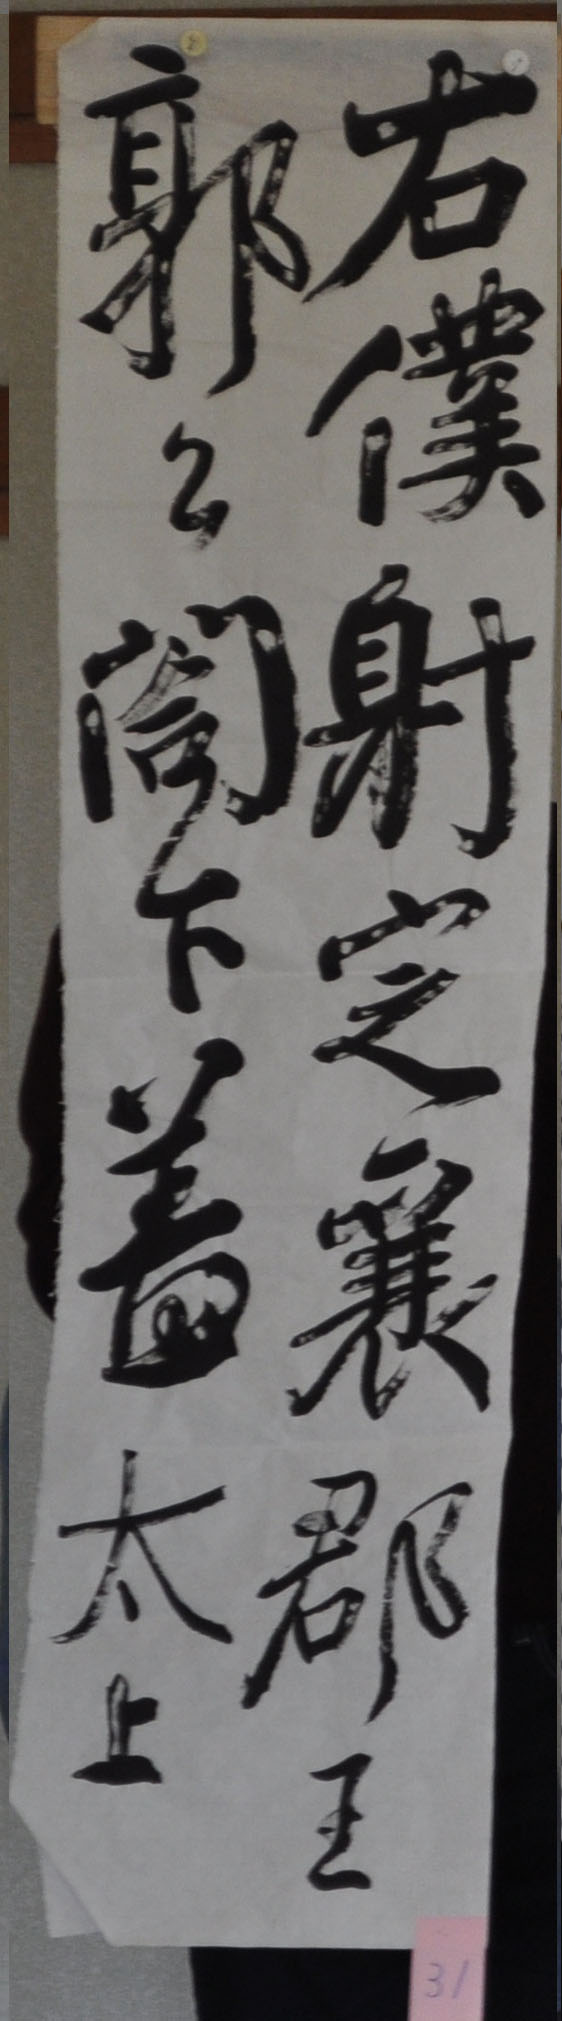 右僕射定襄郡王
郭公閤下蓋太上
31